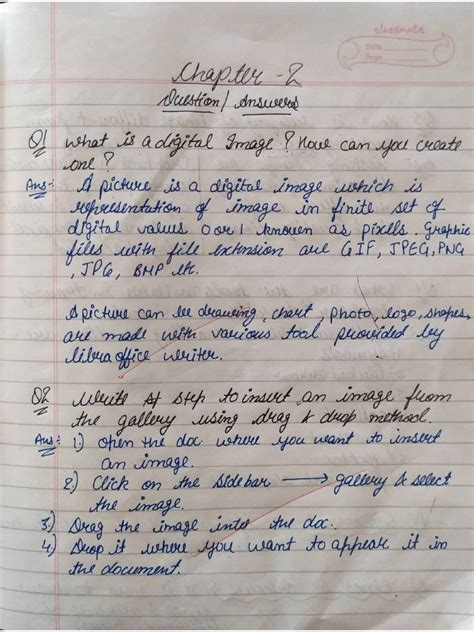 classmate
Date
Page
Chapter - 2
Question / Answers
Q1 What is a digital Image ? How can you create
one ?
Ans:- A picture is a digital image which is
representation of image in finite set of
digital values 0 or 1 known as pixels. Graphic
files with file extension are GIF, JPEG, PNG
, JPG, BMP etc.
A picture can be drawing, chart, photo, logo, shapes,
are made with various tool provided by
libra office writer.
Q2 Write step to insert an image from
the gallery using drag & drop method.
Ans:- 1.) Open the doc where you want to insert
an image.
2.) Click on the sidebar → gallery & select
the image.
3.) Drag the image into the doc.
4.) Drop it where you want to appear it in
the document.